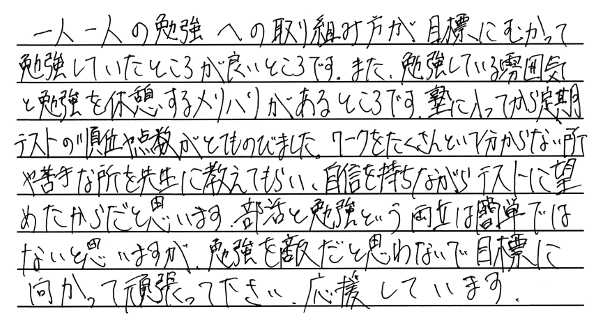 一人一人の勉強への取り組み方が目標にむかって
勉強していたところが良いところです。また、勉強している雰囲気
と勉強を休憩するメリハリがあるところです。塾に入ってから定期
テストの順位や点数がとてものびました。ワークをたくさんといて分からない所
や苦手な所を先生に教えてもらい、自信を持ちながらテストに望
めたからだと思います。部活と勉強という両立は簡単では
ないと思いますが、勉強を敵だと思わないで目標に
向かって頑張って下さい。応援しています。